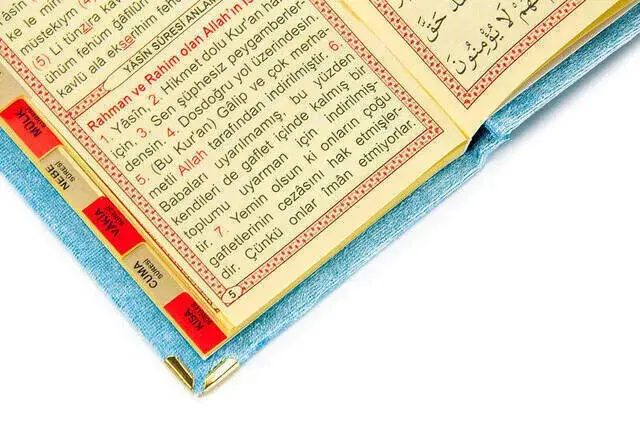 müstekıym
(5) Li tünzira kavmen
ühüm fehüm gâfilûn
kavlü alâ ekserihim fehüm
YÂSÎN SÛRESİ ANLAMI
Rahman ve Rahim olan Allah'ın is
1. Yâsîn, 2. Hikmet dolu Kur'an hak
için, 3. Sen şüphesiz peygamberler-
densin. 4. Dosdoğru yol üzerindesin.
5. (Bu Kur'an) Gâlip ve çok merha-
metli Allah tarafından indirilmiştir. 6.
Babaları uyarılmamış, bu yüzden
kendileri de gaflet içinde kalmış bir
toplumu uyarman için indirilmiş-
tir. 7. Yemin olsun ki onların çoğu
gafletlerinin cezasını hak etmişler-
dir. Çünkü onlar îmân etmiyorlar.
5
لَقَدْ حَقَّ
فَهُمْ لَا يُؤْمِنُونَ
MÜLK
SÛRESİ
NEBE
SÛRESİ
VÂKIA
SÛRESİ
CUMA
SÛRESİ
KISA
SÛRELER